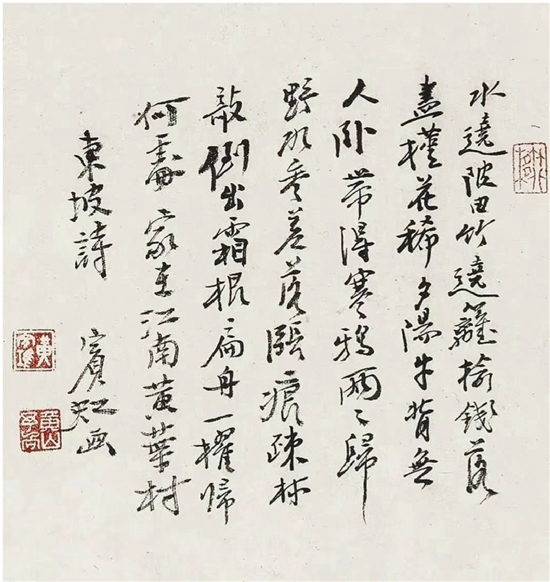 水遶陂田竹遶籬榆錢落
盡槿花稀夕陽牛背無
人卧帶得寒鴉兩〻歸
野水參差落漲痕疎林
敧倒出霜根扁舟一櫂歸
何處家在江南黃葉村
東坡詩
賓虹画